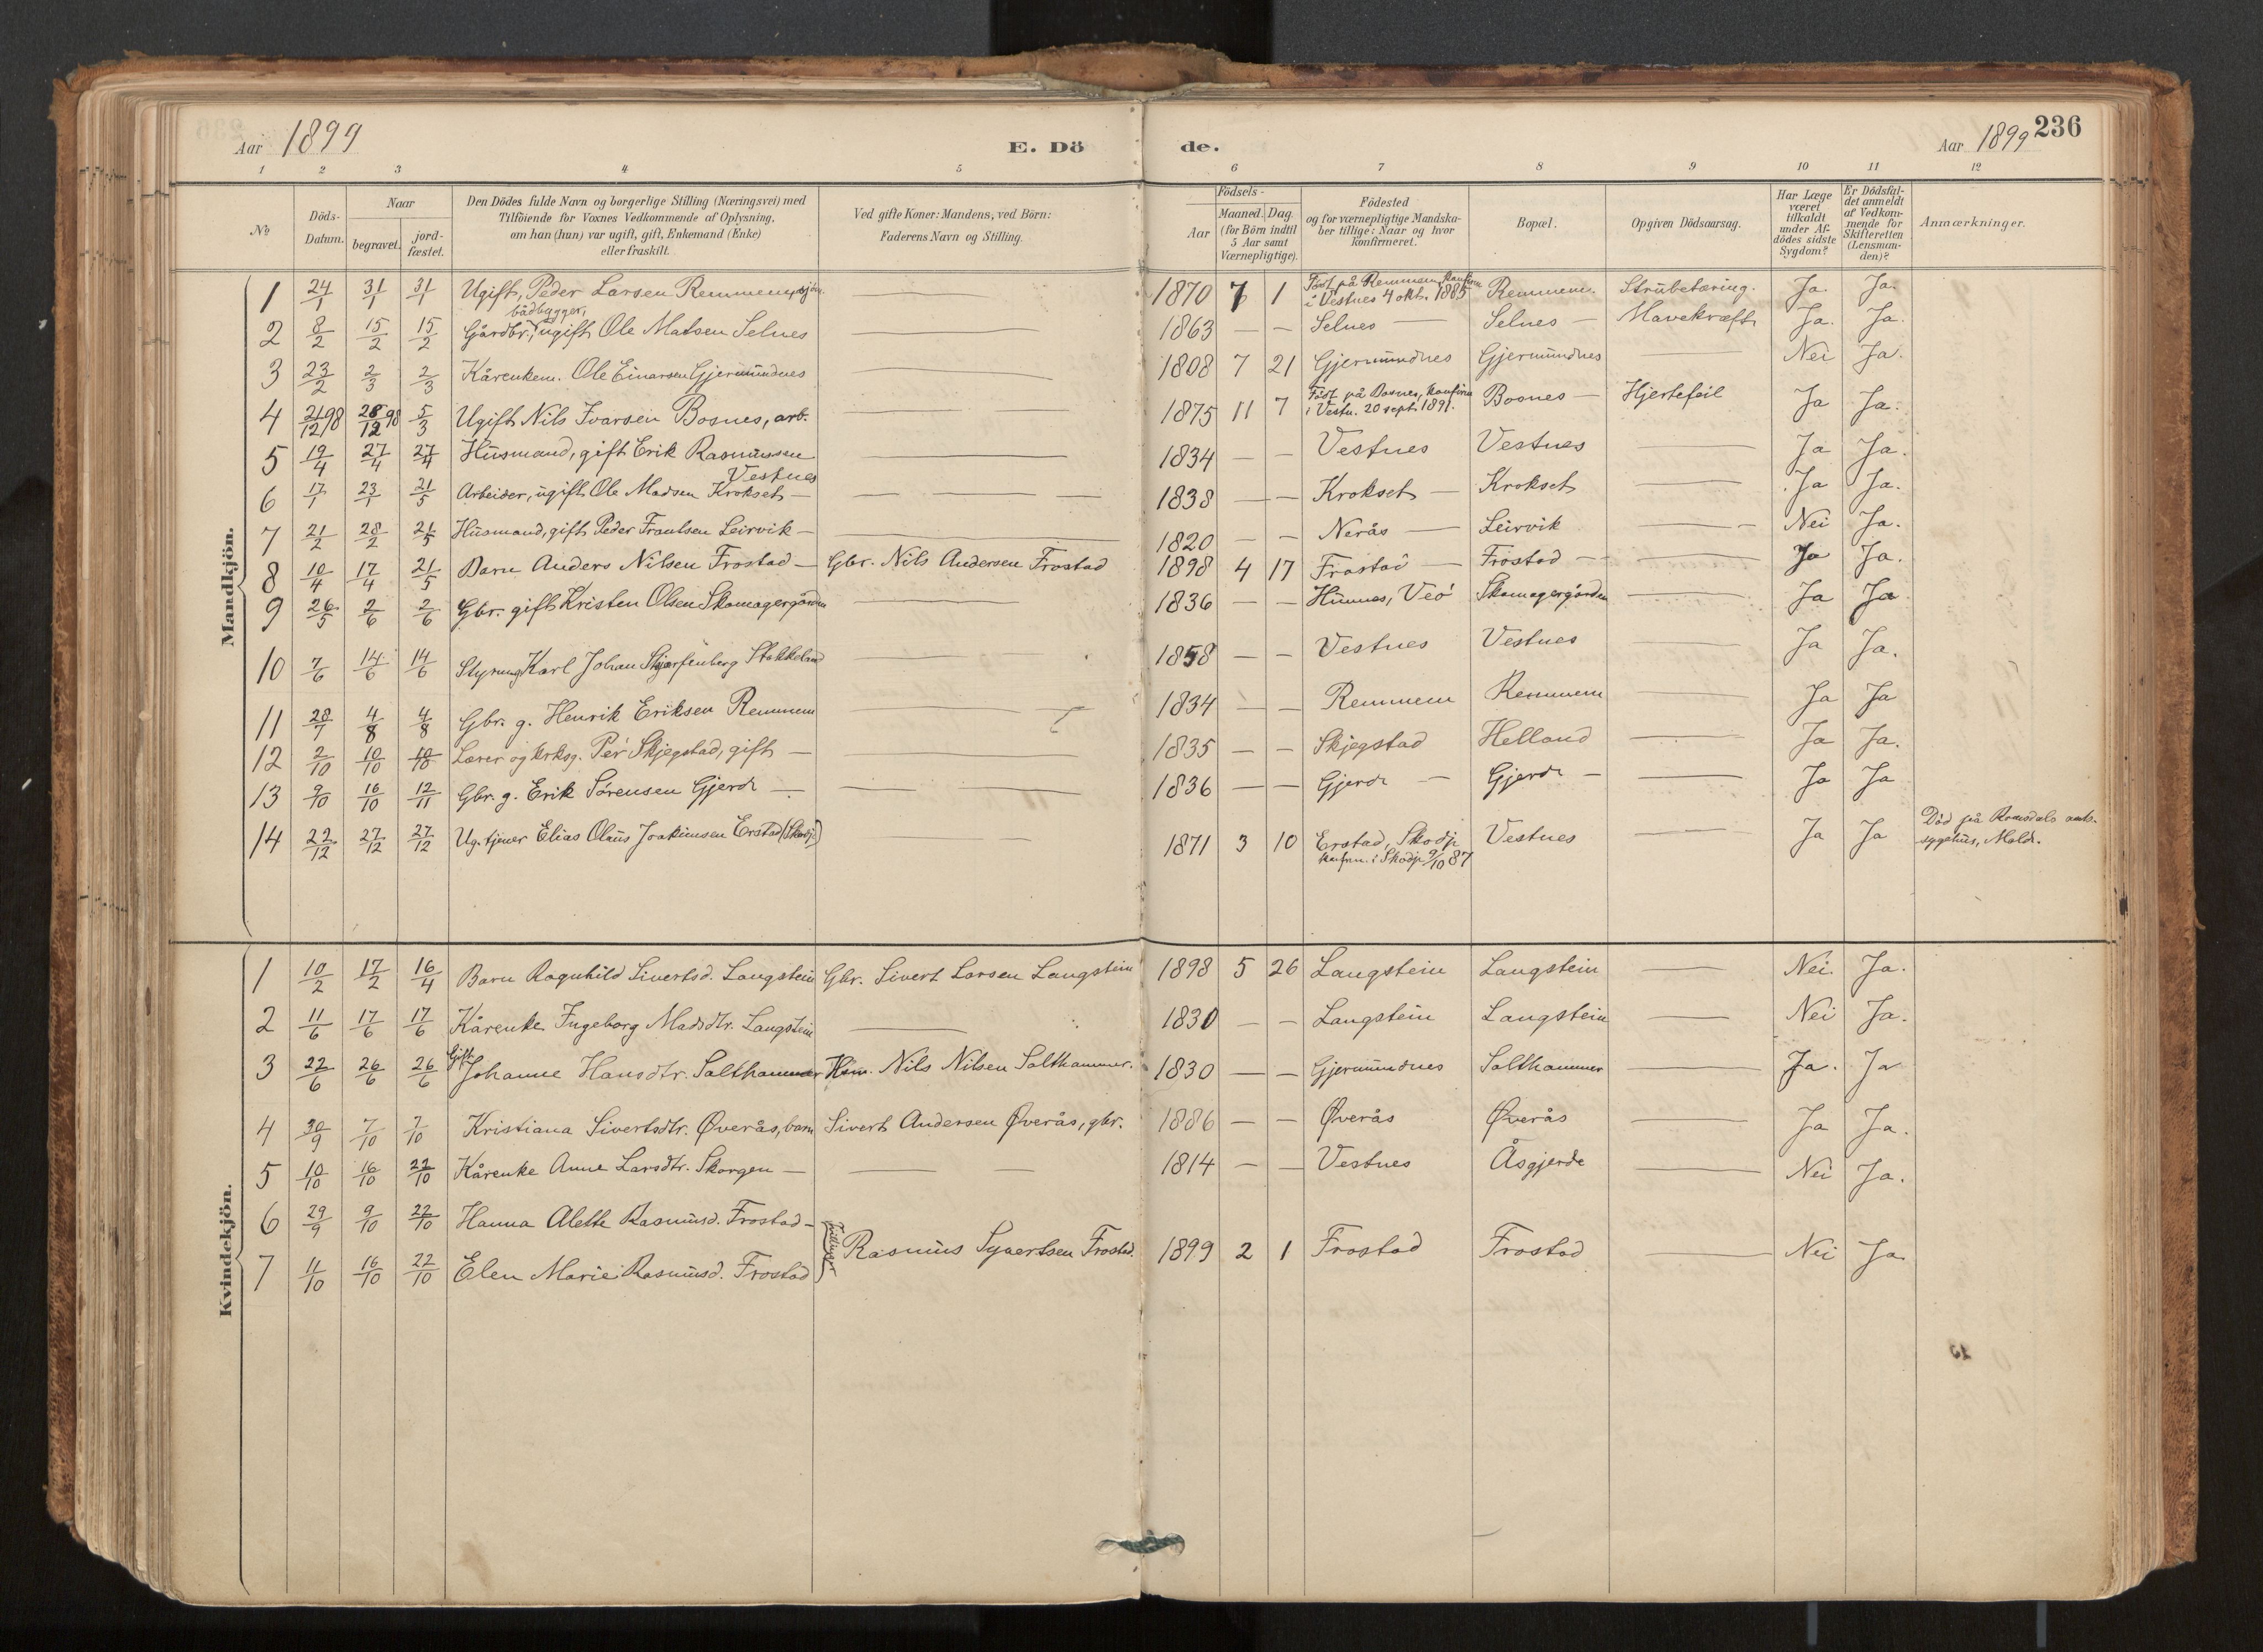 236
Aar 1899
E. Dö
de.
Aar 1899
1 2 3 4 5 6 7 8 9 10 11 12
№
Döds-
Datum.
Naar
begravet.
jord-
fæstet.
Den Dödes fulde Navn og borgerlige Stilling (Næringsvei) med
Tilföiende for Voxnes Vedkommende af Oplysning,
om han (hun) var ugift, gift, Enkemand (Enke)
eller fraskilt.
Ved gifte Koner: Mandens, ved Börn:
Faderens Navn og Stilling.
Födsels-
Aar
Maaned.
Dag.
(for Börn indtil
5 Aar samt
Værnepligtige).
Födested
og for værnepligtige Mandska-
ber tillige: Naar og hvor
konfirmeret.
Bopæl.
Opgiven Dödsaarsag.
Har Læge
været
tilkaldt
under Af-
dödes sidste
Sygdom?
Er Dödsfal-
det anmeldt
af Vedkom-
mende for
Skifteretten
(Lensman-
den)?
Anmærkninger.
Mandkjön.
1 24/1 31/1 31/1 Ugift, Peder Larsen Remmem, — 1870 7 1 Født på Remmem, konfirm. i Vestnes 4 okt. 1885 Remmem. Strubetæring. Ja. Ja.
bådbygger,
2 8/2 15/2 15/2 Gårdbr., ugift Ole Matsen Selnes — 1863 — — Selnes — Selnes — Mavekræft Ja. Ja.
3 23/2 2/3 2/3 Kårenkem. Ole Einarsen Gjermundnes — 1808 7 21 Gjermundnes Gjermundnes — Nei Ja.
4 21/12 98 28/12 98 5/3 Ugift Nils Ivarsen Bosnes, arb. 1875 11 7 Født på Bosnes, konfirm. i Vestn. 20 sept. 1891. Bosnes — Hjertefeil Ja Ja.
5 19/4 27/4 27/4 Husmand, gift Erik Rasmussen Vestnes — 1834 — — Vestnes Vestnes — Ja Ja.
6 17/1 23/1 21/5 Arbeider, ugift Ole Madsen Krokset — — 1838 — — Krokset — Krokset — Ja Ja.
7 21/2 28/2 21/5 Husmand, gift Peder Frantsen Leirvik — — 1820 — — Nerås — Leirvik — Nei Ja.
8 10/4 17/4 21/5 Barn Anders Nilsen Frostad — Gbr. Nils Andersen Frostad 1898 4 17 Frostad — Frostad — — Ja Ja.
9 26/5 2/6 2/6 Gbr. gift Kristen Olsen Skomagergården — 1836 — — Hunnes, Veö Skomagergården — Ja Ja
10 7/6 14/6 14/6 Karl Johan Skjærfenberg Stokkeland — 1858 — — Vestnes Vestnes — Ja Ja.
11 28/7 4/8 4/8 Gbr. g. Henrik Eriksen Remmem — 1834 — — Remmem Remmem — Ja Ja
12 2/10 10/10 10/10 Lærer og krksg. Per Skjegstad, gift — — 1835 — — Skjegstad Helland — Ja Ja.
13 9/10 16/10 12/11 Gbr. g. Erik Sörensen Gjerde — — 1836 — — Gjerde — Gjerde — — Ja Ja
14 22/12 27/12 27/12 Ug. tjener Elias Olaus Joakimsen Erstad (Skodje) — 1871 3 10 Erstad, Skodje konfirm. i Skodje 9/10 87 Vestnes — Ja Ja Död på Romsdals amts-
sygehus, Molde.
Kvindekjön.
1 10/2 17/2 16/4 Barn Ragnhild Sivertsd. Langstein Gbr. Sivert Larsen Langstein 1898 5 26 Langstein Langstein — Nei. Ja.
2 11/6 17/6 17/6 Kårenke Ingeborg Madsdtr. Langstein — 1830 — — Langstein Langstein — Nei Ja.
3 22/6 26/6 26/6 Gift Johanne Hansdtr. Salthammer Husm. Nils Nilsen Salthammer. 1830 — — Gjermundnes Salthammer — Ja. Ja
4 30/9 7/10 7/10 Kristiana Sivertsdtr. Øverås, barn Sivert Andersen Øverås, gbr. 1886 — — Øverås Øverås — Ja Ja.
5 10/10 16/10 22/10 Kårenke Anne Larsdtr. Skorgen — — 1814 — — Vestnes Åsgjerde — Nei Ja.
6 29/9 9/10 22/10 Hanna Alette Rasmusd. Frostad —
7 11/10 16/10 22/10 Elen Marie Rasmusd. Frostad
tvillinger Rasmus Syvertsen Frostad. 1899 2 1 Frostad Frostad — Nei Ja